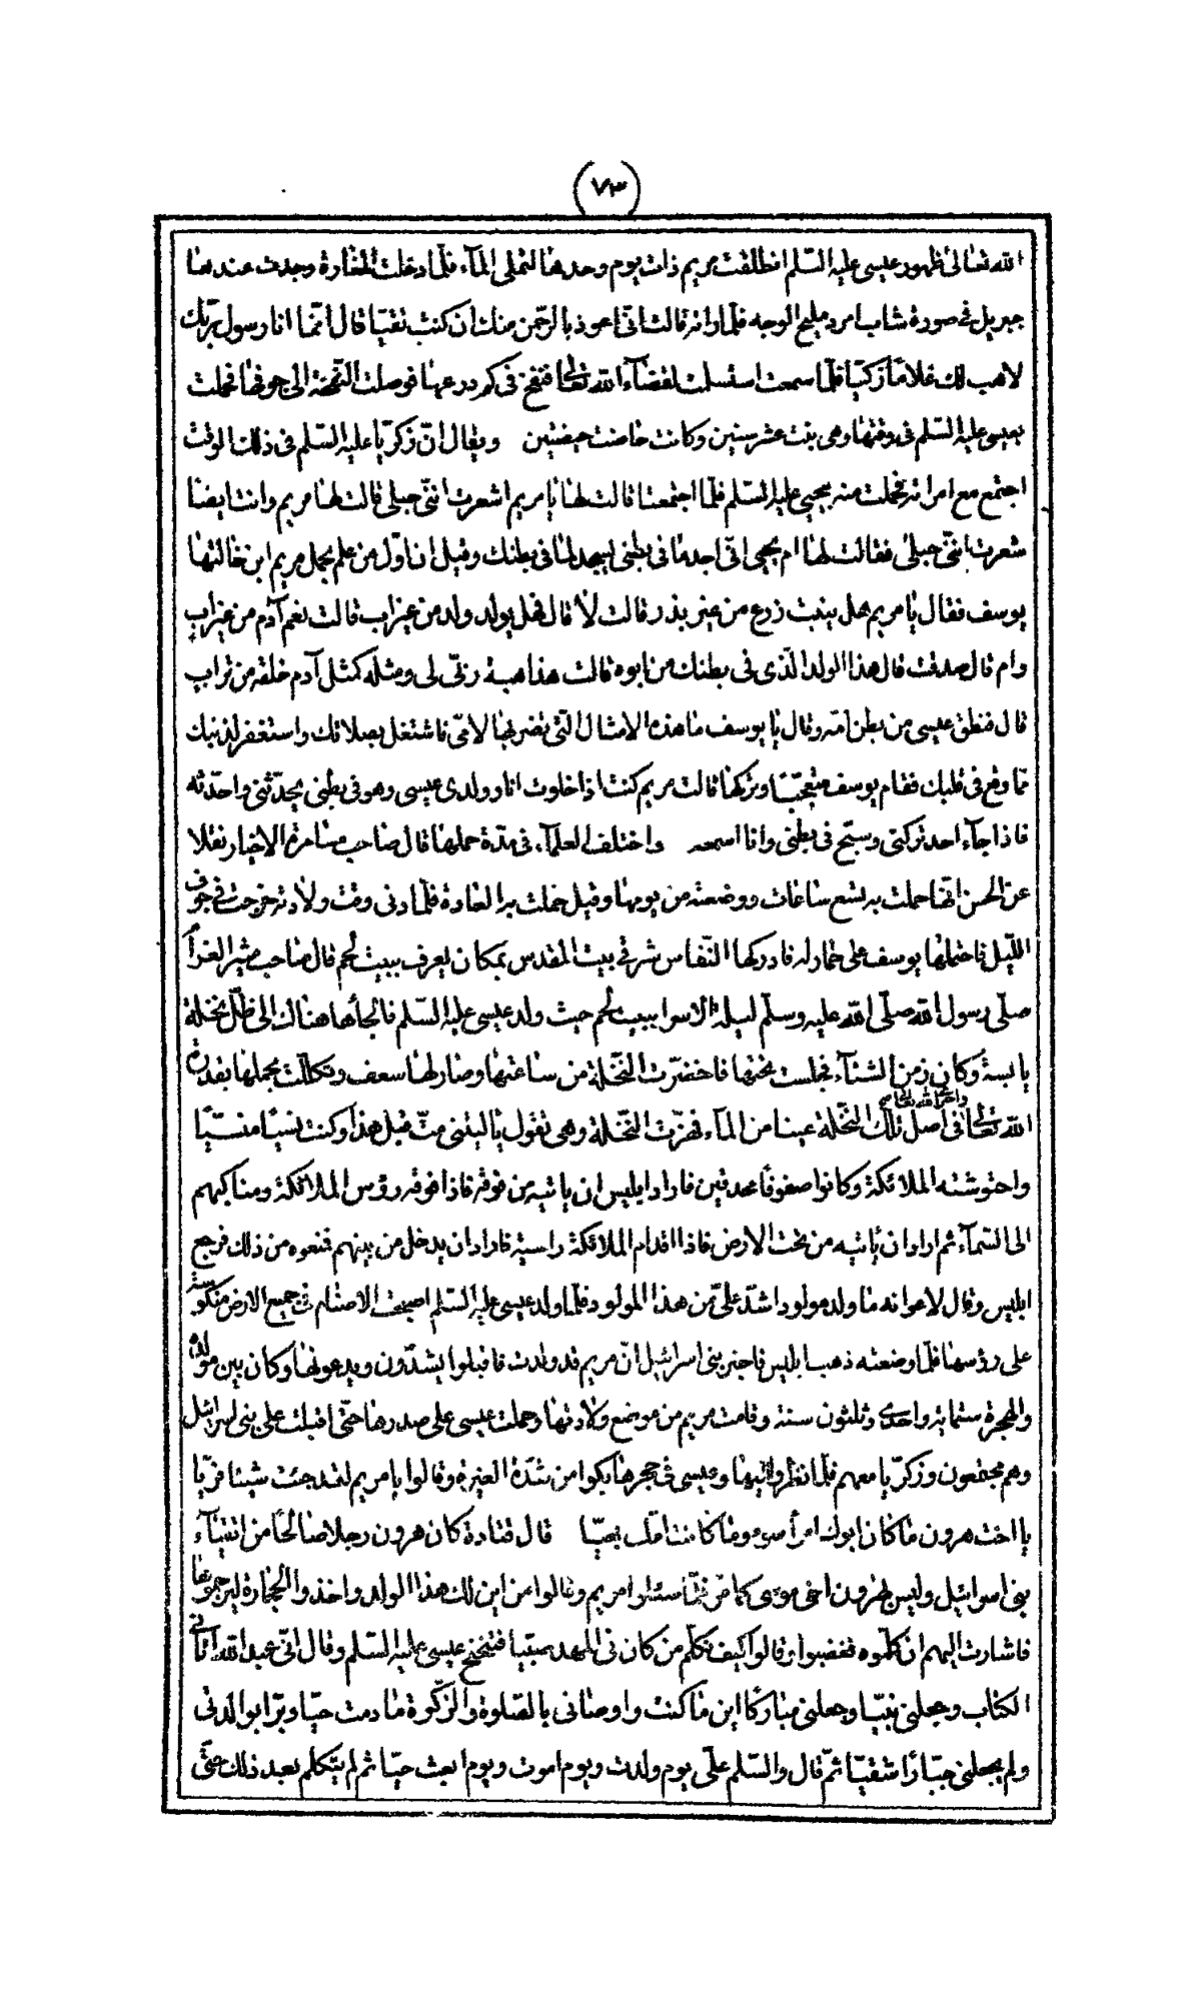 (٧٣)
الله تعالى ظهور عيسى عليه السلم انطلقت مريم ذات يوم وحدها لتملى المآء فلما دخلت المغارة وجدت عندها
جبريل فى صورة شاب امرد مليح الوجه فلما راته قالت انى اعوذ بالرحمن منك ان كنت تقيا قال انما انا رسول ربك
لاهب لك غلاما زكيا فلما سمعت استسلت لقضاء الله تعالى فنفخ فى كم درعها فوصلت النفخة الى جوفها فحملت
بعيسى عليه السلم فى وقتها وهى بنت عشر سنين وكانت حاضت حيضتين ويقال ان زكريا عليه السلم فى ذلك الوقت
اجتمع مع امراته فحملت منه بيحيى عليه السلم فلما اجتمعتا قالت لها يا مريم اشعرت انى حبلى قالت لها مريم وانت ايضا
شعرت اننى حبلى فقالت لها ام يحيى انى اجد ما فى بطنى يسجد لما فى بطنك وقيل ان اول من علم بحمل مريم ابن خالتها
يوسف فقال يا مريم هل ينبت زرع من غير بذر قالت لا قال فهل يولد ولد من غير اب قالت نعم آدم من غير اب
وام قال صدقت قال هذا الولد الذى فى بطنك من ابوه قالت هذا هبة ربى لى ومثله كمثل آدم خلقه من تراب
قال فنطق عيسى من بطن امه وقال يا يوسف ما هذه الامثال التى تضربها لامى فاشتغل بصلاتك واستغفر لذنبك
مما وقع فى قلبك فقام يوسف متعجبا وتركها قالت مريم كنت اذا خلوت انا وولدى عيسى وهو فى بطنى يحدثنى واحدثه
فاذا جآء احد تركنى وسبح فى بطنى وانا اسمعه واختلف العلمآء فى مدة حملها قال صاحب مسامرة الاخيار نقلا
عن الحسن انها حملت به تسع ساعات ووضعته من يومها وقيل حملت به العادة فلما دنى وقت ولادته خرجت فى جوف
الليل فاحتملها يوسف على حمار له فادركها النفاس شرقى بيت المقدس بمكان يعرف ببيت لحم قال صاحب مثير الغرام
صلى رسول الله صلى الله عليه وسلم ليلة الاسرا ببيت لحم حيث ولد عيسى عليه السلم فالجأها هناك الى ظل نخلة
يابسة وكان زمن الشتآء فجلست تحتها فاخضرت النخلة من ساعتها وصار لها سعف وتكللت بحملها بقدرة
الله تعالى واجرى الله تعالى فى اصل تلك النخلة عينا من المآء فهزت النخلة وهى تقول يا ليتنى مت قبل هذا وكنت نسيا منسيا
واحتوشته الملائكة وكانوا صفوفا محدقين فاراد ابليس ان ياتيه من فوقه فاذا فوقه رؤس الملائكة ومناكبهم
الى السمآء ثم اراد ان ياتيه من تحت الارض فاذا اقدام الملائكة راسية فاراد ان يدخل من بينهم فمنعوه من ذلك فرجع
ابليس وقال لاعوانه ما ولد مولود اشد على من هذا المولود فلما ولد عيسى عليه السلم اصبحت الاصنام فى جميع الارض منكوسة
على رؤسها فلما وضعته ذهب ابليس فاخبر بنى اسرائيل ان مريم قد ولدت فاقبلوا يشدون ويدعونها وكان بين مولده
والهجرة ستمائة واحدى وثلثون سنة وقامت مريم من موضع ولادتها وحملت عيسى على صدرها حتى اقبلت على بنى اسرائيل
وهم مجتمعون وزكريا معهم فلما نظروا اليها وعيسى فى حجرها بكوا من شدة الغيرة وقالوا يا مريم لقد جئت شيئا فريا
يا اخت هرون ما كان ابوك امرأ سوء وما كانت امك بغيا قال قتادة كان هرون رجلا صالحا من اتقيآء
بنى اسرائيل وليس بهرون اخى موسى كما مر فلما سئلوا مريم وقالوا من اين لك هذا الولد واخذوا الحجارة ليرجموها
فاشارت اليهم ان كلموه فغضبوا وقالوا كيف نكلم من كان فى المهد صبيا فتنحنح عيسى عليه السلم وقال انى عبد الله آتانى
الكتاب وجعلنى نبيا وجعلنى مباركا اين ما كنت واوصانى بالصلوة والزكوة ما دمت حيا وبرا بوالدتى
ولم يجعلنى جبارا شقيا ثم قال والسلم على يوم ولدت ويوم اموت ويوم ابعث حيا ثم لم يتكلم بعد ذلك حتى